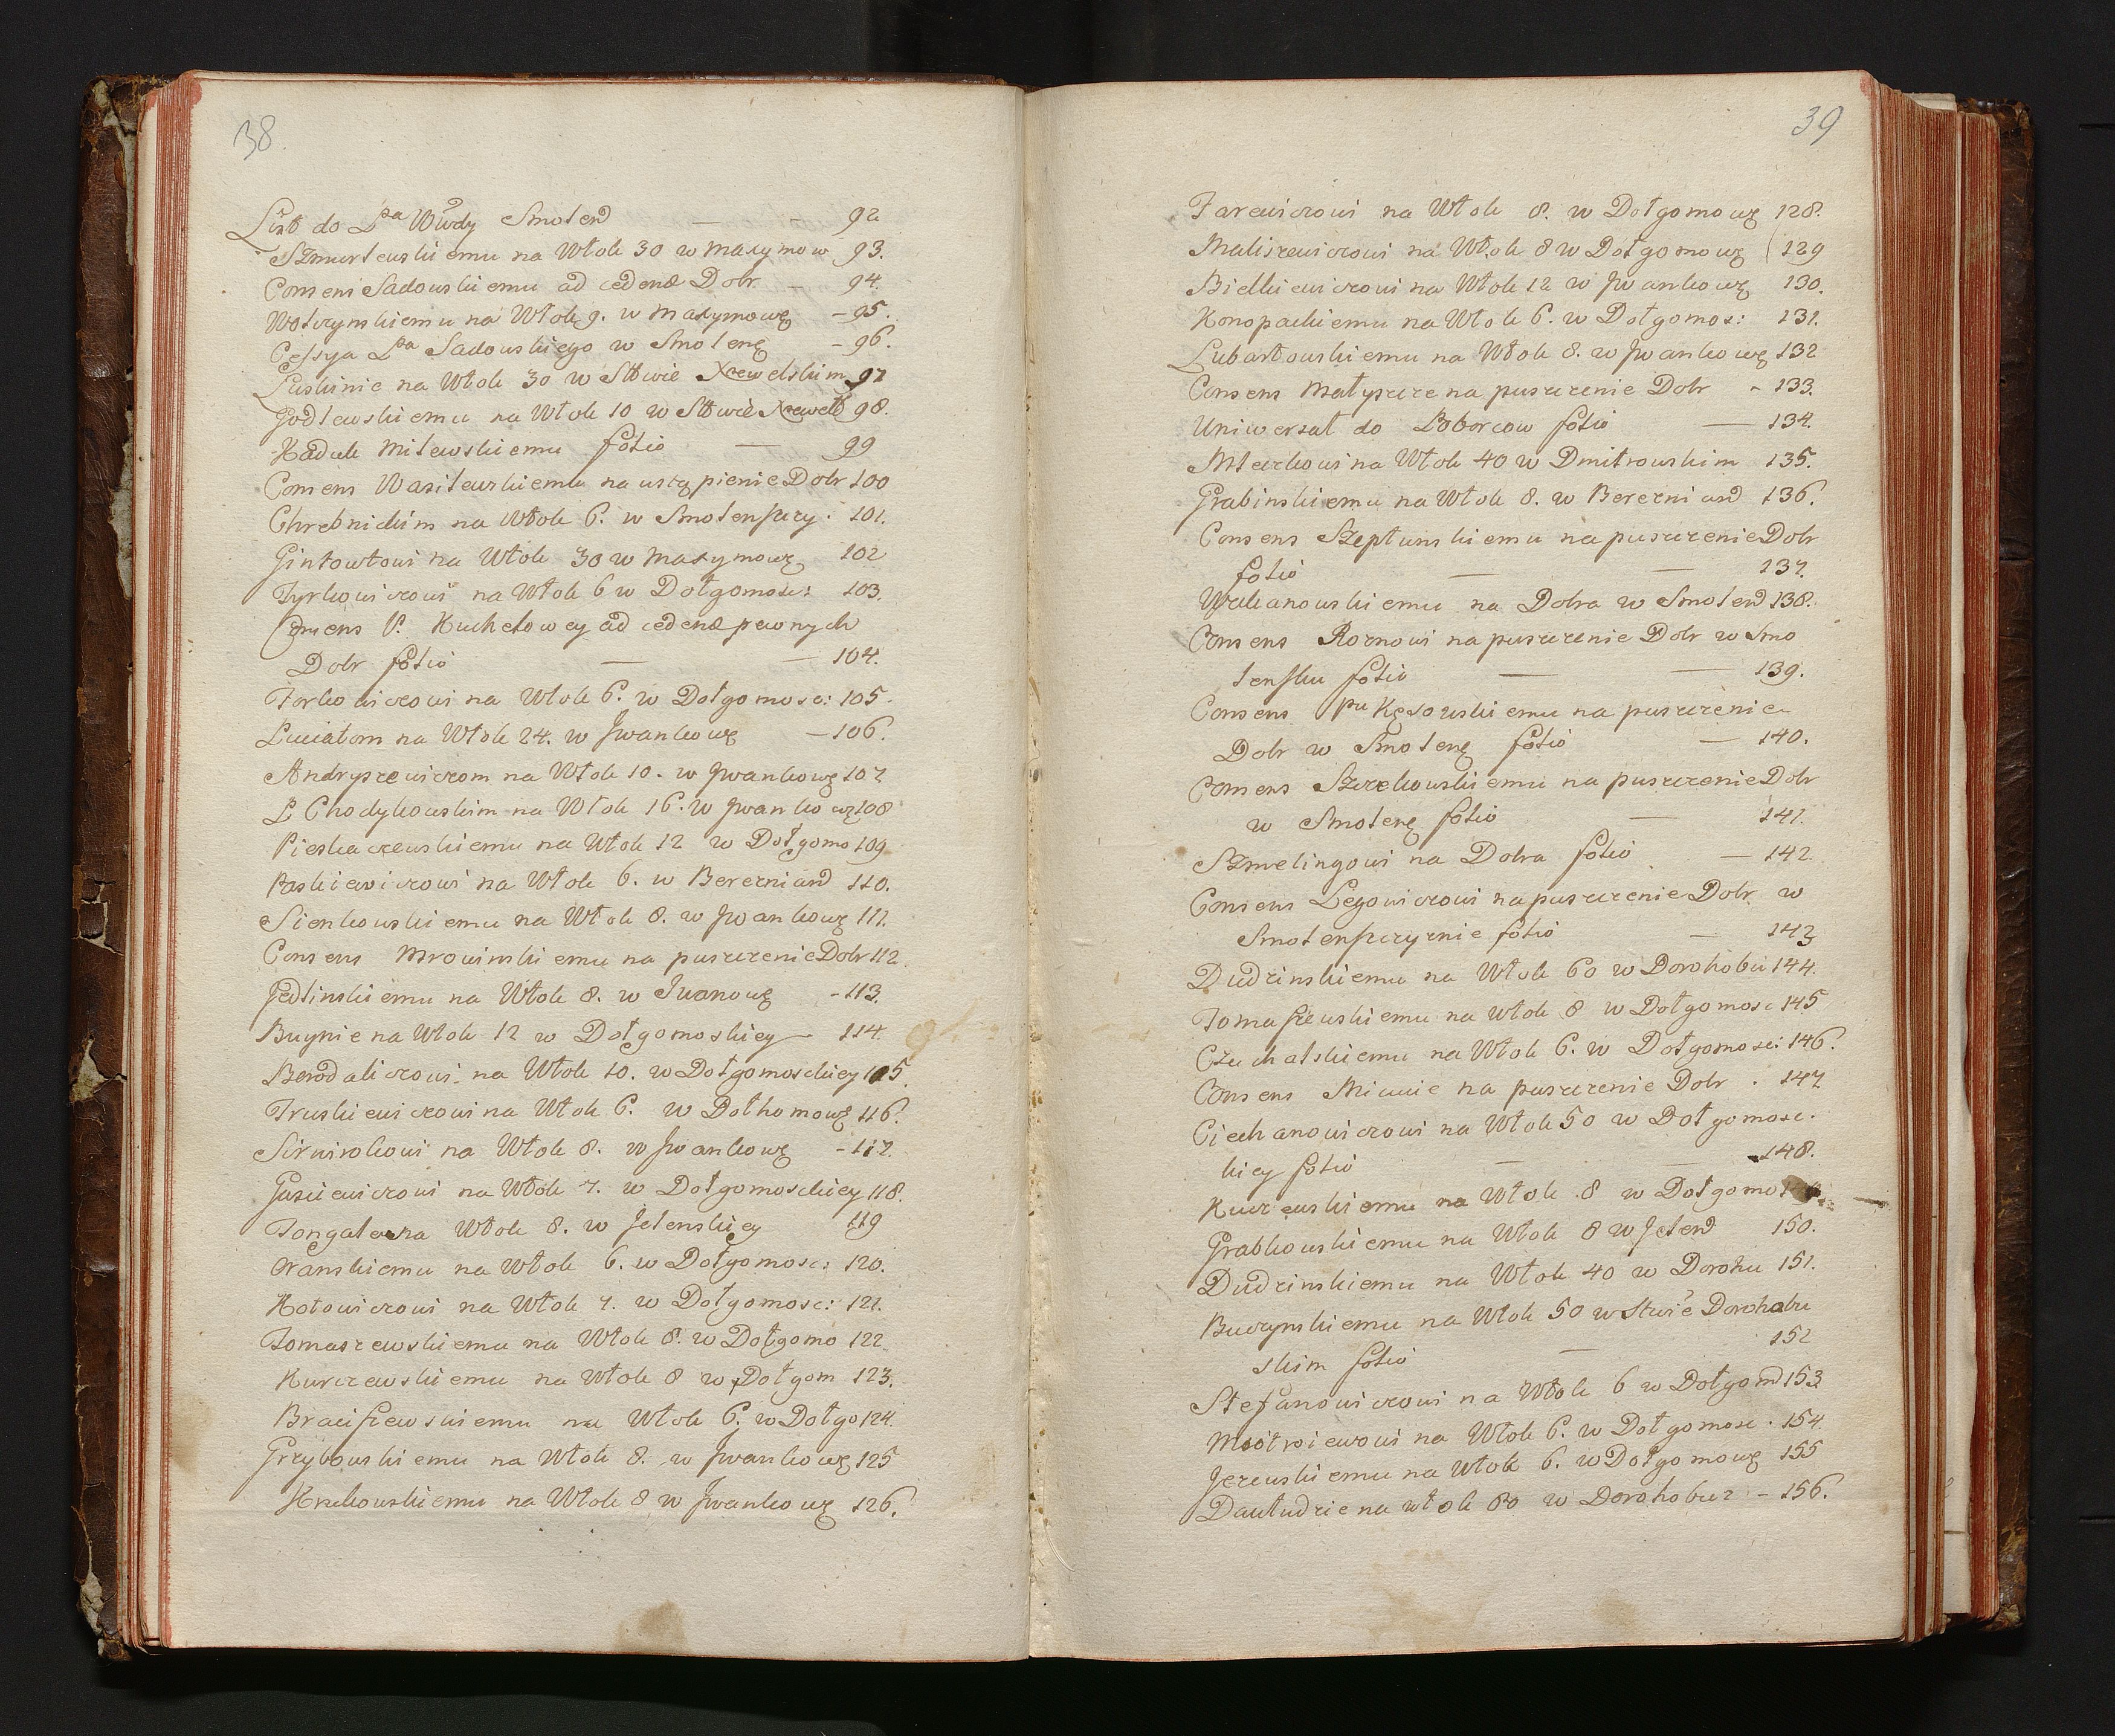 38.
List do Pa Wwdy Smolend — - 92
Szmurlewskiemu na Włok 30 w Maxymow 93.
Consens Sadowskiemu ad cedend Dobr - 94.
Wolczynskiemu na Włok 9. w Maxymowę - 95.
Cessya Pa Sadowskiego w Smolenę - 96.
Łuskinie na Włok 30 w Sttwie Xrewelskim 97
Godlewskiemu na Włok 10 w Sttwie Xrewelt 98.
Kaduk Milewskiemu folio — 99
Consens Wasilewskiemu na ustąpienie Dobr 100
Chrebnickim na Włok 6. w Smolenszczy. 101.
Gintowtowi na Włok 30 w Maxymowę 102
Tyrkowiczowi na Włok 6 w Dołgomosc: 103.
Consens P. Kuchełowey ad cedend pewnych
Dobr folio — — 104.
Torkowiczowi na Włok 6. w Dołgomosc: 105.
Łuciatom na Włok 24. w Jwankowę - 106.
Andryszewiczom na Włok 10. w Jwankowę 107.
P Chodykowskim na Włok 16. w Jwankowę 108
Pieskaczewskiemu na Włok 12 w Dołgomo 109
Paskiewiczowi na Włok 6. w Berezniand 110.
Sienkowskiemu na Włok 8. w Jwankowę 111.
Consens Mrowinskiemu na puszczenie Dobr 112
Jedlinskiemu na Włok 8. w Iwanowę - 113.
Buynie na Włok 12 w Dołgomoskiey - 114.
Berodaliczowi na Włok 10. w Dołgomosckiey 115.
Truskiewiczowi na Włok 6. w Dołhomowę 116.
Sirwirokowi na Włok 8. w Jwankowę - 117.
Gusciewiczowi na Włok 7. w Dołgomosckiey 118.
Tongalew na Włok 8. w Jelenskiey 119
Oranskiemu na Włok 6. w Dołgomosc: 120.
Kotowiczowi na Włok 7. w Dołgomosc: 121.
Tomaszewskiemu na Włok 8. w Dołgomo 122.
Kurczewskiemu na Włok 8 w Dołgom 123.
Braciszewskiemu na Włok 6. w Dołgo 124.
Grzybowskiemu na Włok 8. w Jwankowę 125
Krukowskiemu na Włok 8 w Jwankowę 126.
39
Tarewiczowi na Włok 8. w Dołgomowę 128.
Maliszewiczowi na Włok 8 w Dołgomowę 129
Bielkiewiczowi na Włok 12 w Jwankowę 130.
Konopackiemu na Włok 6. w Dołgomos: 131.
Lubartowskiemu na Włok 8. w Jwankowę 132
Consens Małyszcze na puszczenie Dobr - 133.
Uniwersał do Poborcow folio — 134.
Mleczkowi na Włok 40 w Dmitrowskim 135.
Grabinskiemu na Włok 8. w Berezniand 136.
Consens Szeptunskiemu na puszczenie Dobr
folio — — 137.
Wakanowskiemu na Dobra w Smolend 138.
Consens Roznowi na puszczenie Dobr w Smo
lensku folio — — 139.
Consens Pu Kęsowskiemu na puszczenie
Dobr w Smolenę folio — 140.
Consens Szczekowskiemu na puszczenie Dobr
w Smolenę folio — 141.
Szmelingowi na Dobra folio — 142.
Consens Legowiczowi na puszczenie Dobr w
Smolenszczyznie folio — 143
Dudzinskiemu na Włok 60 w Dorohobu 144.
Tomaszewskiemu na Włok 8 w Dołgomosc 145
Czuchalskiemu na Włok 6. w Dołgomosc: 146.
Consens Micunie na puszczenie Dobr. 147.
Ciechanowiczowi na Włok 50 w Dołgomosc.
kiey folio — — 148.
Kurzewskiemu na Włok 8 w Dołgomo
Grabkowskiemu na Włok 8 w Jelend 150.
Dudzinskiemu na Włok 40 w Dorohu 151.
Buczynskiemu na Włok 50 w Stwie Dorohobu
skim folio — 152
Stefanowiczowi na Włok 6 w Dołgomd 153
Mostroiewowi na Włok 6. w Dołgomosc. 154.
Jezewskiemu na Włok 6. w Dołgomowę 155
Dawłudzie na włok 60 w Dorohobuz - 156.